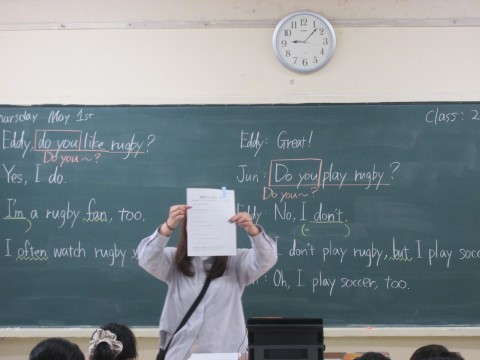 Thursday May 1st
Class: 2
Eddy, do you like rugby?
Do you~?
Yes, I do.
I'm a rugby fan, too.
I often watch rugby
Eddy: Great!
Jun: Do you play rugby?
Do you~?
Eddy: No, I don't.
I don't play rugby, but I play soc
Oh, I play soccer, too.